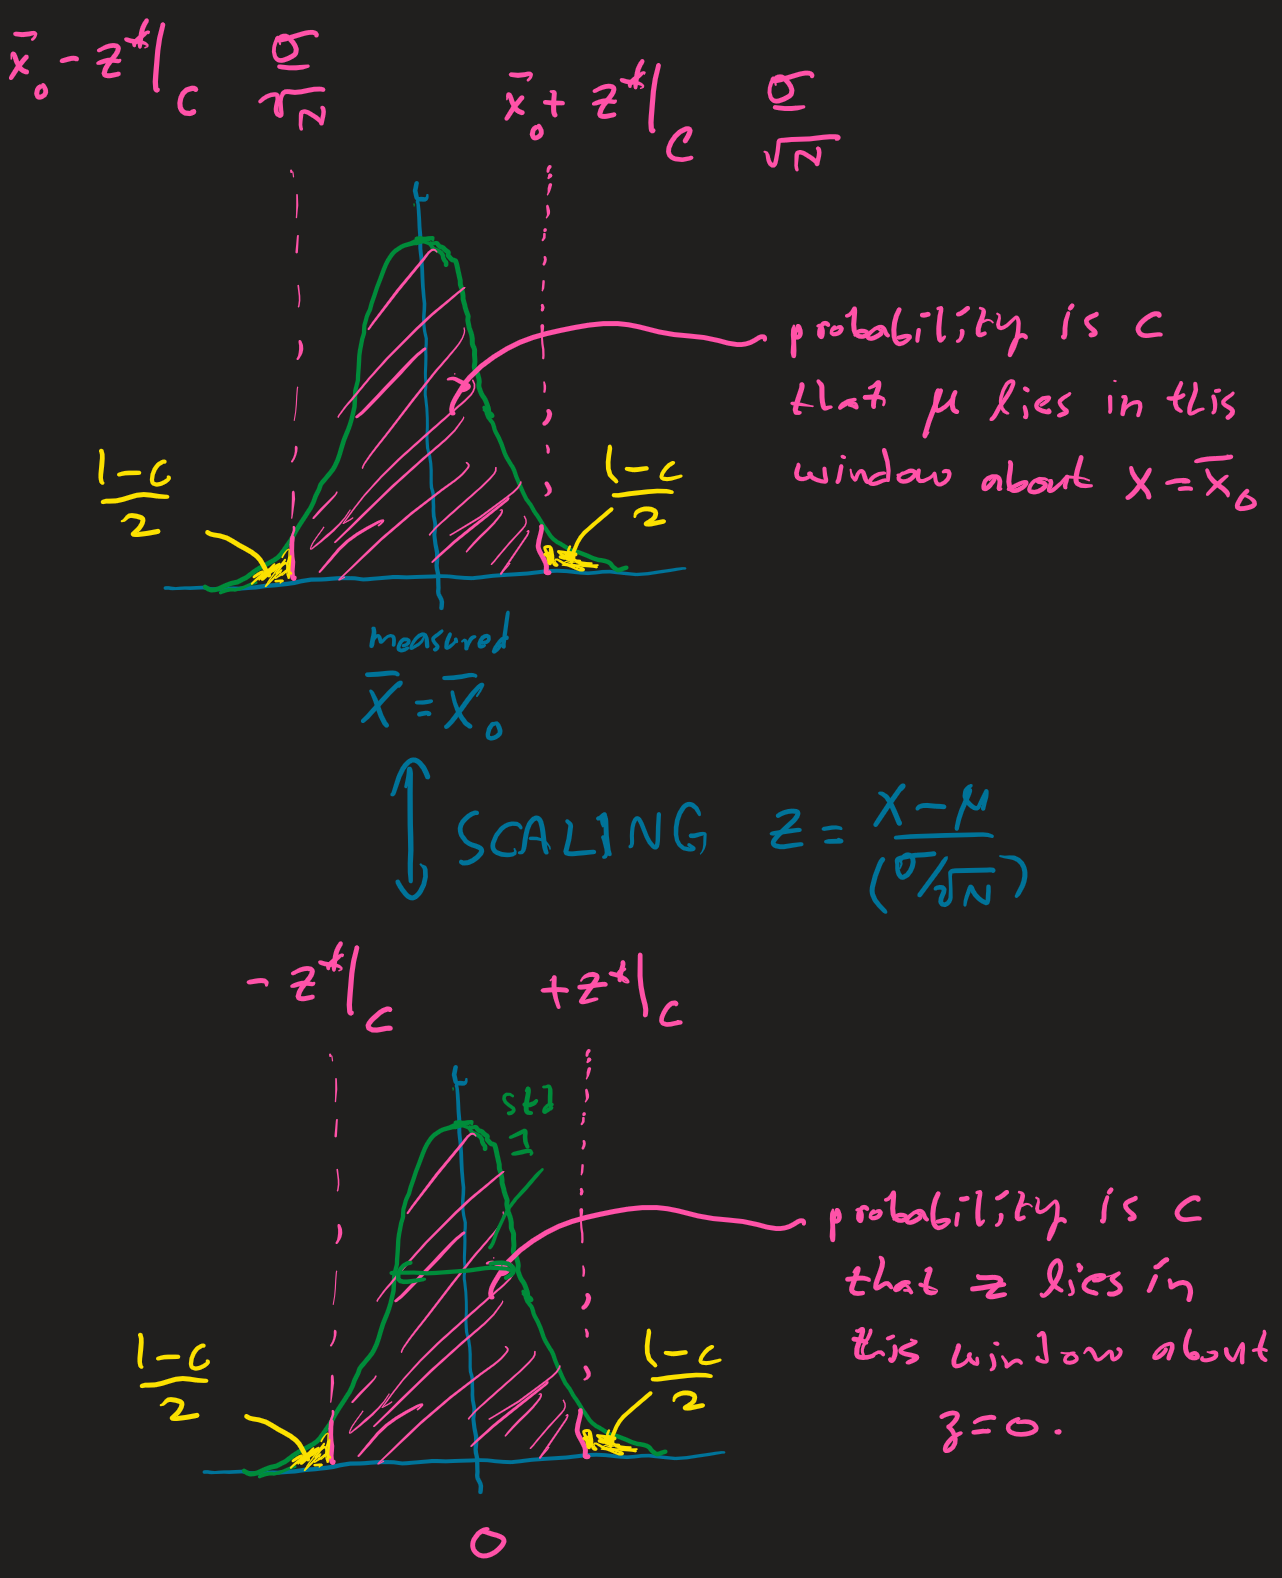 x̄₀ - z*|_C σ/√N
x̄₀ + z*|_C σ/√N
probability is C
that μ lies in this
window about x = x̄₀
(1-C)/2
(1-C)/2
measured
X̄ = X̄₀
SCALING z = (X-μ)/(σ/√N)
- z*|_C
+ z*|_C
std
1
probability is C
that z lies in
this window about
z=0.
(1-C)/2
(1-C)/2
0